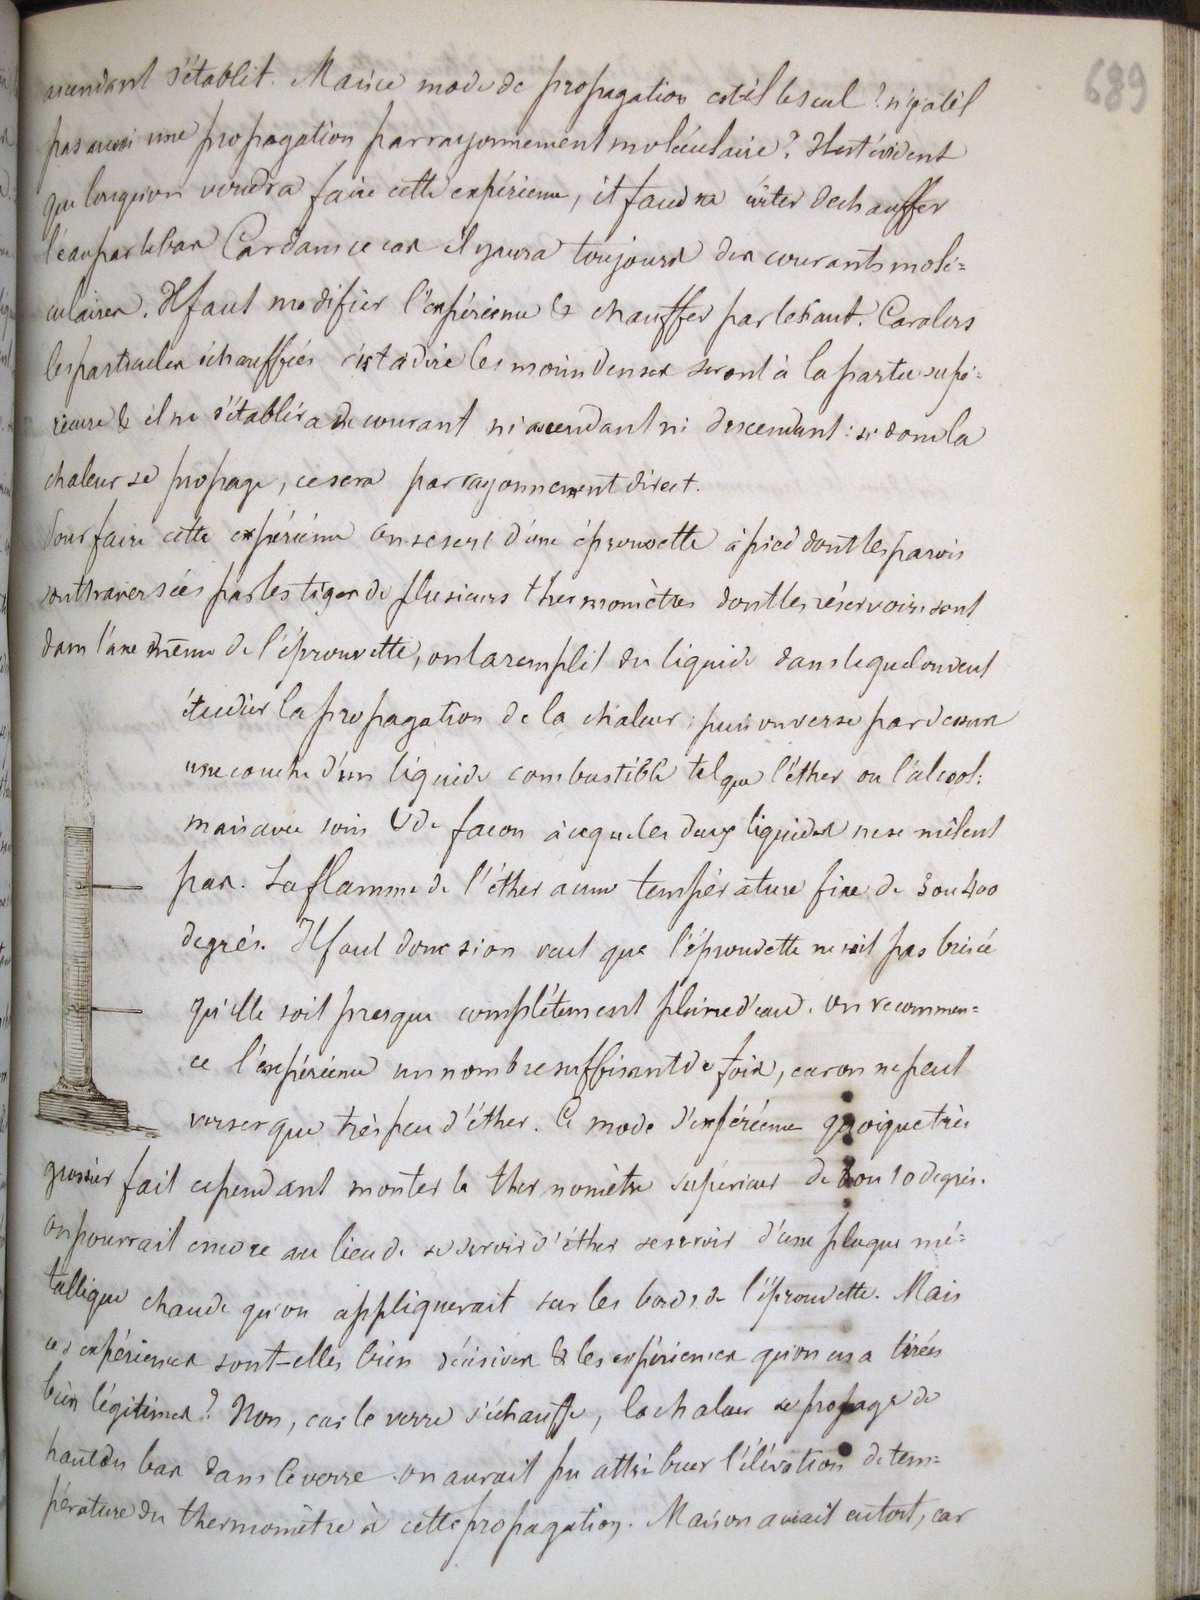 689
ascendant s'établit. Mais ce mode de propagation est-il le seul ? n'y a til
pas aussi une propagation par rayonnement moléculaire ? Il est évident
que lorsqu'on voudra faire cette expérience, il faudra éviter de chauffer
l'eau par le bas Car dans ce cas il y aura toujours des courants molé=
culaires. Il faut modifier l'expérience & chauffer par le haut. Car alors
les particules échauffées c'est à dire les moins denses seront à la partie supé=
rieure & il ne s'établira de courant ni ascendant ni descendant : si donc la
chaleur se propage, ce sera par rayonnement direct.
Pour faire cette expérience on se sert d'une éprouvette à pied dont les parois
sont traversées par les tiges de plusieurs thermomètres dont les réservoirs sont
dans l'axe même de l'éprouvette, on la remplit du liquide dans lequel on veut
étudier la propagation de la chaleur ; puis on verse par dessus
une couche d'un liquide combustible tel que l'éther ou l'alcool :
mais avec soin & de façon à ce que les deux liquides ne se mêlent
pas. La flamme de l'éther a une température fixe de 3 ou 400
degrés. Il faut donc si on veut que l'éprouvette ne soit pas brisée
qu'elle soit presque complétement pleine d'eau. on recommen=
ce l'expérience un nombre suffisant de fois, car on ne peut
verser que très peu d'éther. Ce mode d'expérience quoique très
grossier fait cependant monter le thermomètre supérieur de ou 10 degrés.
on pourrait encore au lieu de se servir d'éther se servir d'une plaque mé=
tallique chaude qu'on appliquerait sur les bords de l'éprouvette. Mais
ces expériences sont-elles bien décisives & les expériences qu'on en a tirées
bien légitimes ? Non, car le verre s'échauffe, la chaleur se propage de
haut en bas dans le verre on aurait pu attribuer l'élévation de tem=
pérature du thermomètre à cette propagation. Mais on aurait eu tort, car